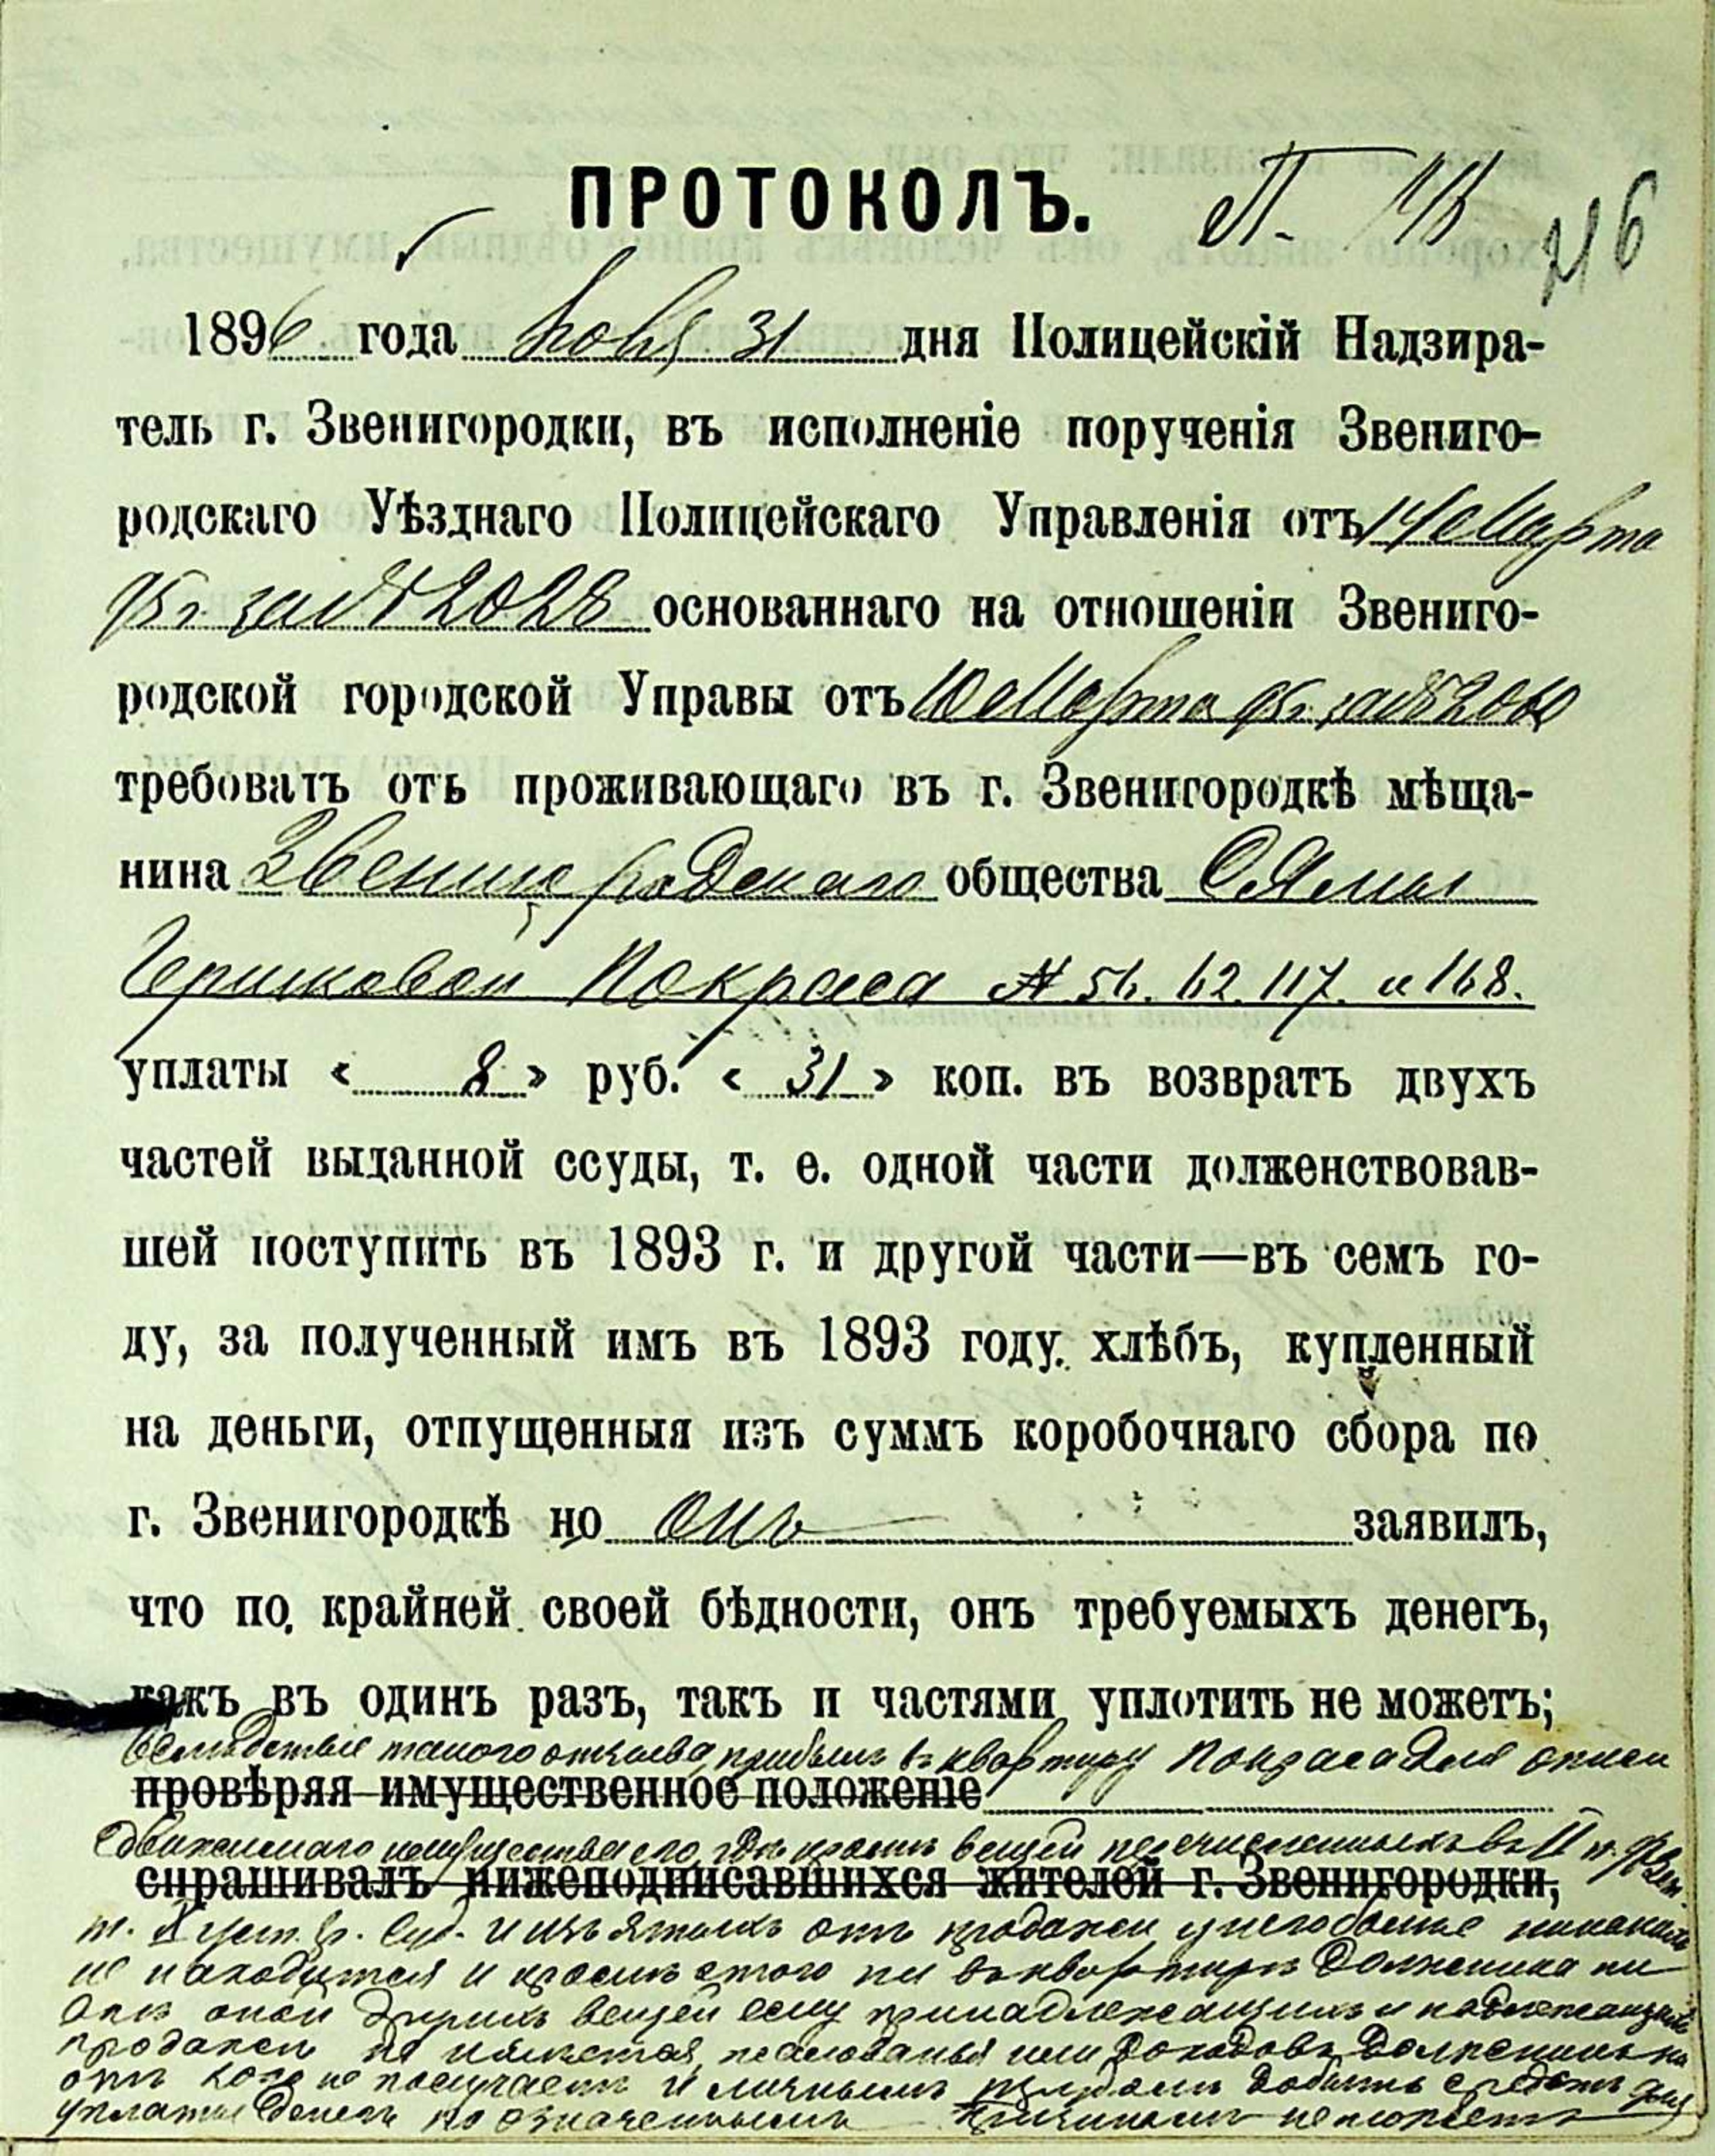 ПРОТОКОЛЪ.
216
1896 года 31 дня Полицейскій Надзира-
тель г. Звенигородки, въ исполненіе порученія Звениго-
родскаго Уѣзднаго Полицейскаго Управленія отъ 14 Марта
95 г. за № 2028 основаннаго на отношеніи Звениго-
родской городской Управы отъ 10 Марта 95 г. за №
требовать отъ проживающаго въ г. Звенигородкѣ мѣща-
нина Звенигородскаго общества
Гершковой Покраса № 56. 62. 117. и 168.
уплаты « 8 » руб. « 31 » коп. въ возвратъ двухъ
частей выданной ссуды, т. е. одной части долженствовав-
шей поступить въ 1893 г. и другой части—въ семъ го-
ду, за полученный имъ въ 1893 году. хлѣбъ, купленный
на деньги, отпущенныя изъ суммъ коробочнаго сбора по
г. Звенигородкѣ но онъ заявилъ,
что по крайней своей бѣдности, онъ требуемыхъ денегъ,
какъ въ одинъ разъ, такъ и частями уплотить не можетъ;
вслѣдствіе такого отзыва, прибывъ въ квартиру Покраса для описи
провѣряя имущественное положеніе
движимаго имущества его, кромѣ вещей перечисленныхъ въ
спрашивалъ нижеподписавшихся жителей г. Звенигородки,
т. X уст. гр. суд. и изъятыхъ отъ продажи никакихъ
не находится и кромѣ этого ни въ квартирѣ должника ни
внѣ оной другихъ вещей ему принадлежащихъ и подлежащихъ
продажи не имѣется, жалованья или доходовъ должникъ ни
отъ кого не получаетъ и личнымъ трудомъ добыть средствъ для
уплаты денегъ по означеннымъ причинамъ не можетъ